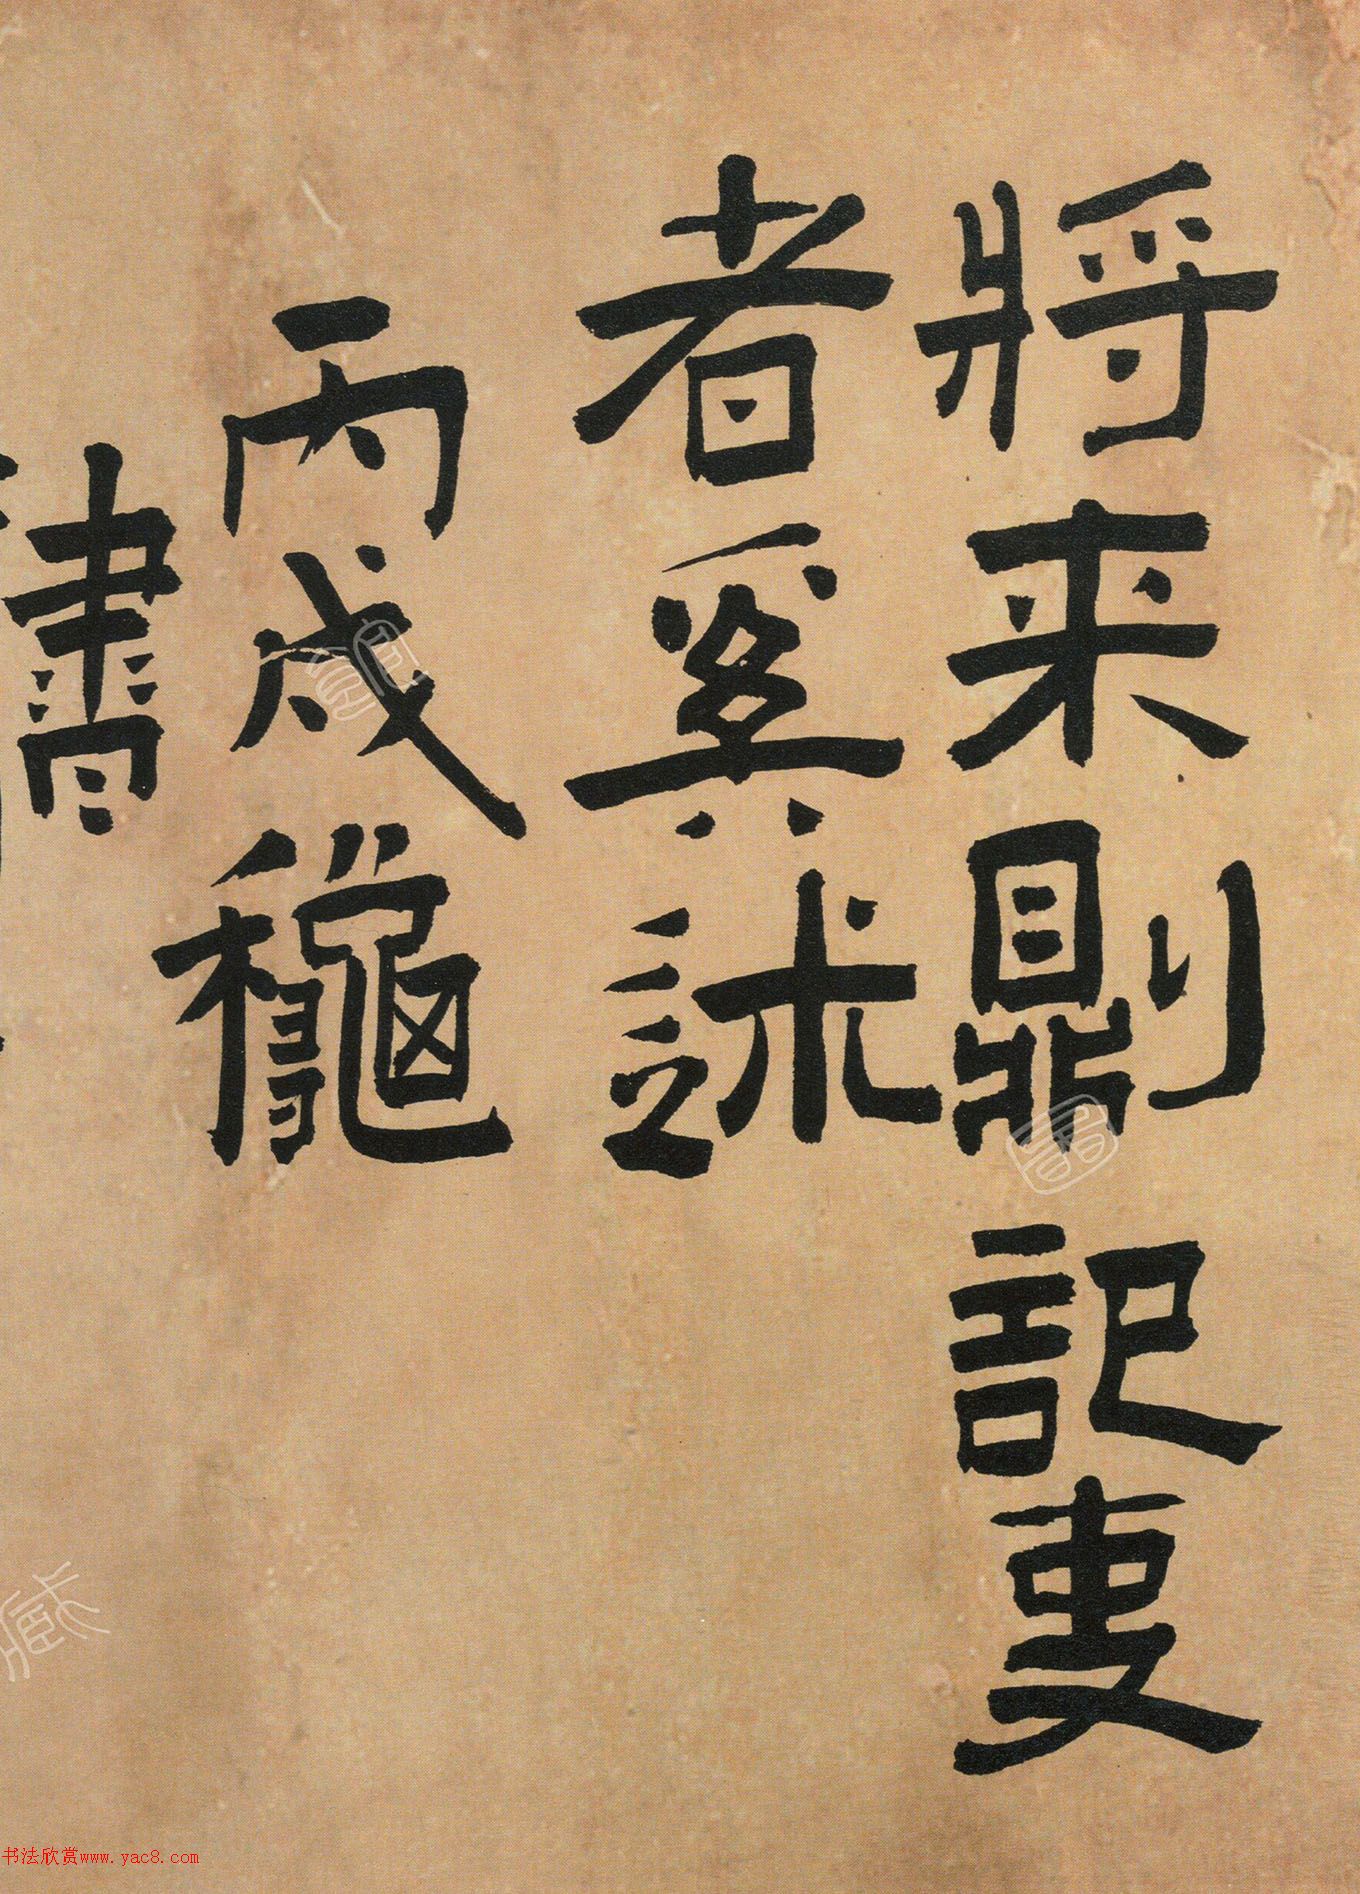 將来則記事
者奚訹
丙戌龝
書
书法欣赏www.yac8.com